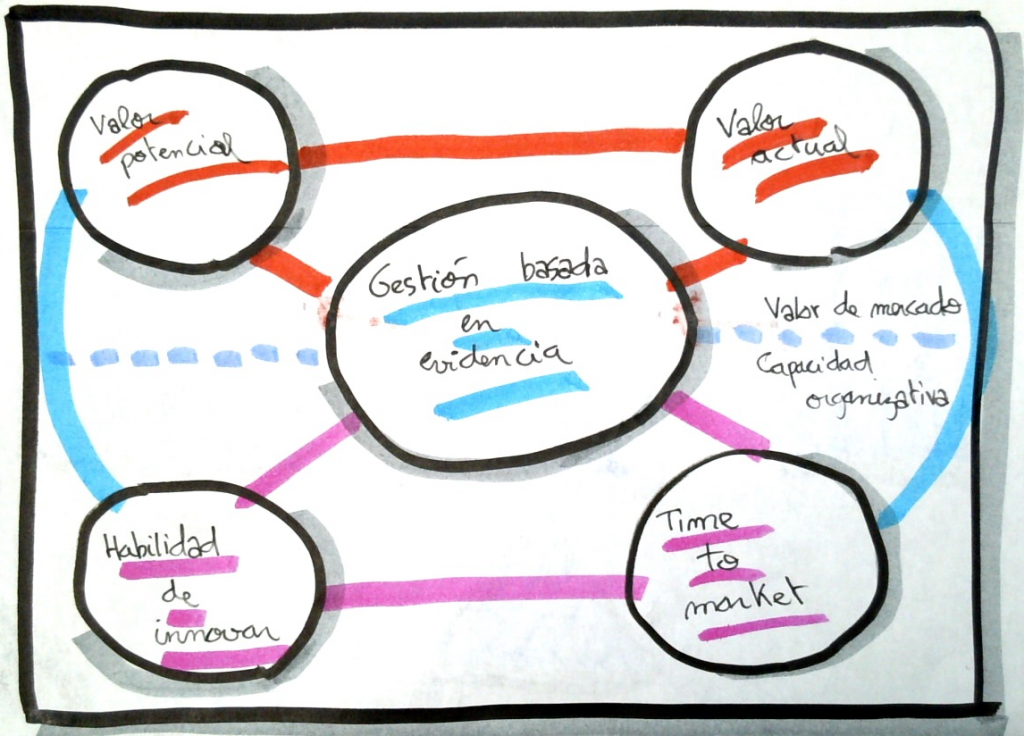 Valor
potencial
Valor
actual
Gestión basada
en
evidencia
Valor de mercado
Capacidad
organizativa
Habilidad
de
innovar
Time
to
market